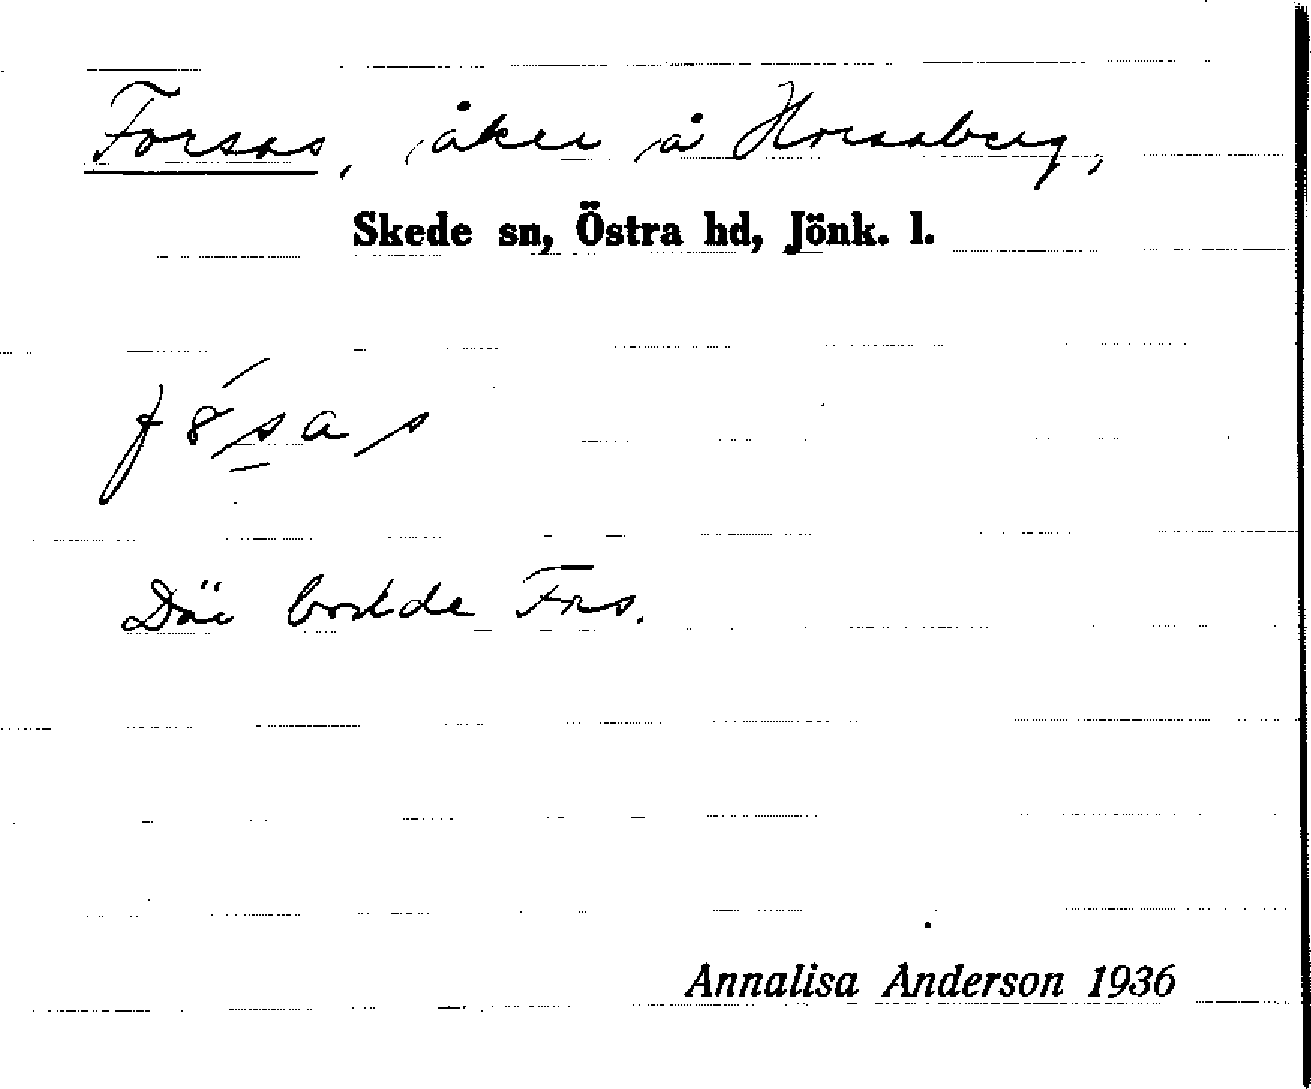 Forsas, åker å Horsaberg,
Skede sn, Östra hd, Jönk. l.
Där bodde Fors.
Annalisa Anderson 1936